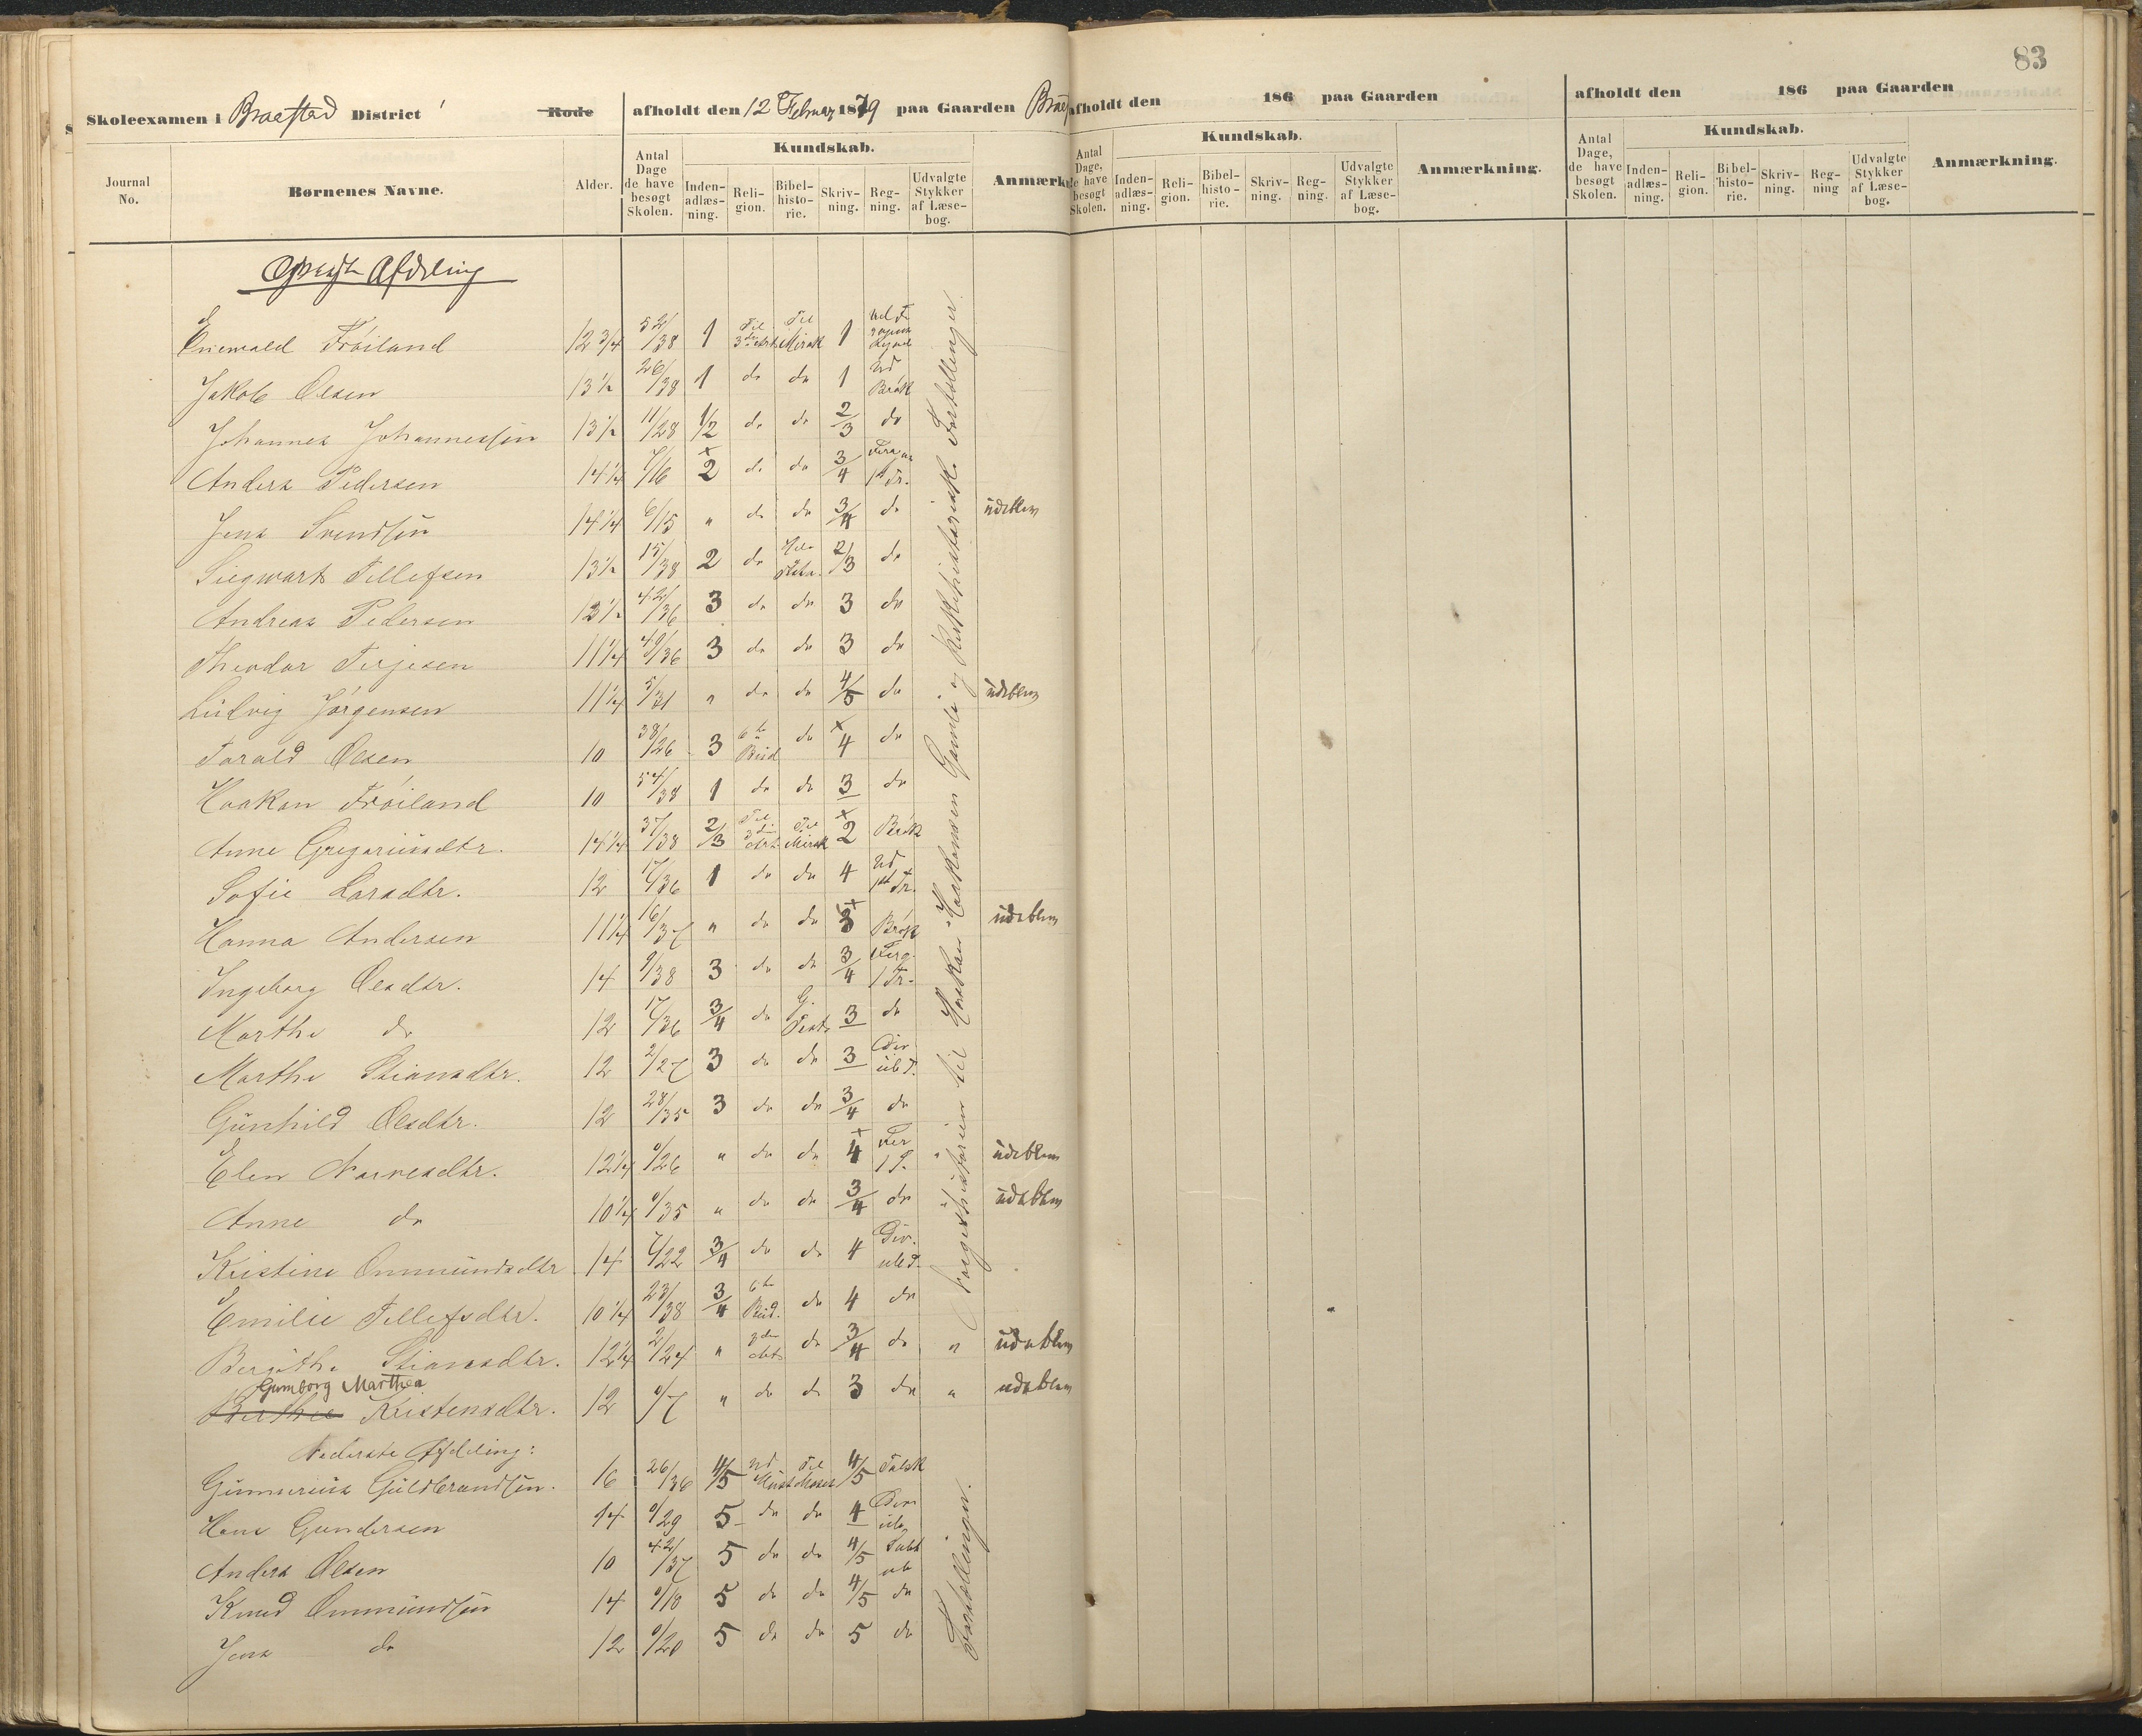 83
Skoleexamen i Braastad District Rode afholdt den 12 Februar 1879 paa Gaarden
afholdt den 186 paa Gaarden
afholdt den 186 paa Gaarden
Journal No. Børnenes Navne. Alder. Antal Dage de have besøgt Skolen. Kundskab. Inden-adlæs-ning. Reli-gion. Bibel-histo-rie. Skriv-ning. Reg-ning. Udvalgte Stykker af Læse-bog. Anmærk
Antal Dage, de have besøgt Skolen. Kundskab. Inden-adlæs-ning. Reli-gion. Bibel-histo-rie. Skriv-ning. Reg-ning. Udvalgte Stykker af Læse-bog. Anmærkning.
Antal Dage, de have besøgt Skolen. Kundskab. Inden-adlæs-ning. Reli-gion. Bibel-histo-rie. Skriv-ning. Reg-ning Udvalgte Stykker af Læse-bog. Anmærkning.
Øverste Afdeling
Enevald Frøiland 12 3/4 52/38 1 Til 3die Art. Til Mirak 1
Jakob Olsen 13 1/2 26/38 1 do do 1 Ud Brøk
Johannes Johannessen 13 1/2 11/28 1/2 do do 2/3 do
Anders Pedersen 14 1/4 7/16 2 do do 3/4
Jens Svendsen 14 1/4 6/15 " do do 3/4 do " udeblev
Siegwart Tellefsen 13 1/2 15/38 2 do 2/3 do
Andreas Pedersen 12 1/2 42/36 3 do do 3 do
Theodor Terjesen 11 1/4 40/36 3 do do 3 do
Ludvig Jørgensen 11 1/4 5/31 " do do 4/5 do " udeblev
Tarald Olsen 10 38/26 3 6te Bud do 4 do
Haakon Frøiland 10 54/38 1 do do 3 do
Anne Gregoriusdtr. 14 1/4 37/38 2/3 Til 3die Art. Til Mirak 2 Brøk
Sofie Larsdtr. 12 17/36 1 do do 4 Ud 1st Tr.
Hanna Andersen 11 1/4 16/37 " do do 3 Brøk " udeblev
Ingeborg Olsdtr. 14 9/38 3 do do 3/4 1 Tr.
Marthe do 12 17/36 3/4 do 3 do
Marthe Stiansdtr. 12 2/27 3 do do 3 Div. ub T.
Gunhild Olsdtr. 12 28/35 3 do do 3/4 do
Elen Narvesdtr. 12 1/4 0/26 " do do 4 " udeblev
Anne do 10 1/4 0/35 " do do 3/4 do " udeblev
Kristine Ommundsdtr 14 7/22 3/4 do do 4 Div. ub T.
Emilie Tellefsdtr. 10 1/4 23/38 3/4 6te Bud. do 4 do
Bergithe Stiansdtr. 12 1/4 2/24 " 3die Art. do 3/4 do " udeblev
Gumborg Marthea
Berthe Kristensdtr. 12 0/7 " do do 3 do " udeblev
Norgeshistorien til Haakon Haakonsen Gamle og Kirkehistoriske Fortællinger.
Nederste Afdeling:
Gunnerius Guldbrandsen. 16 26/36 4/5 Ud Til Moses 4/5
Hans Gundersen 14 0/29 5 do do 4
Anders Olsen 10 42/37 5 do do 4/5
Knud Ommundsen 14 0/18 5 do do 4/5 do
Jens do 12 0/20 5 do do 5 do
Fortællinger.